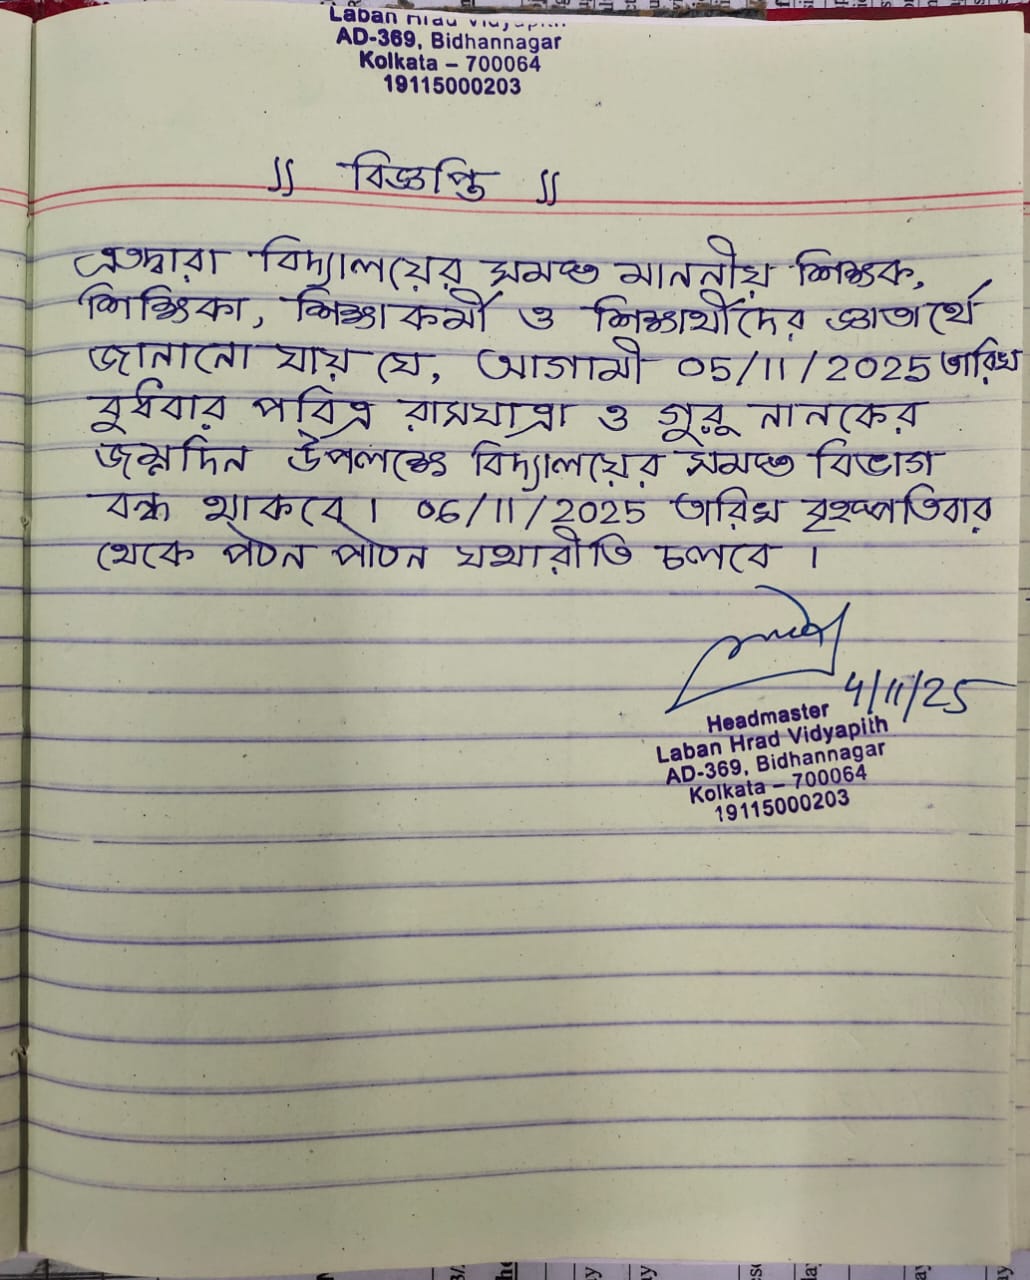 Laban Hrad Vidyapith
AD-369, Bidhannagar
Kolkata – 700064
19115000203
॥ বিজ্ঞপ্তি ॥
এতদ্বারা বিদ্যালয়ের সমস্ত মাননীয় শিক্ষক,
শিক্ষিকা, শিক্ষাকর্মী ও শিক্ষার্থীদের জ্ঞাতার্থে
জানানো যায় যে, আগামী 05/11/2025 তারিখ
বুধবার পবিত্র রাসযাত্রা ও গুরু নানকের
জন্মদিন উপলক্ষে বিদ্যালয়ের সমস্ত বিভাগ
বন্ধ থাকবে। 06/11/2025 তারিখ বৃহস্পতিবার
থেকে পঠন পাঠন যথারীতি চলবে ।
4/11/25
Headmaster
Laban Hrad Vidyapith
AD-369, Bidhannagar
Kolkata – 700064
19115000203